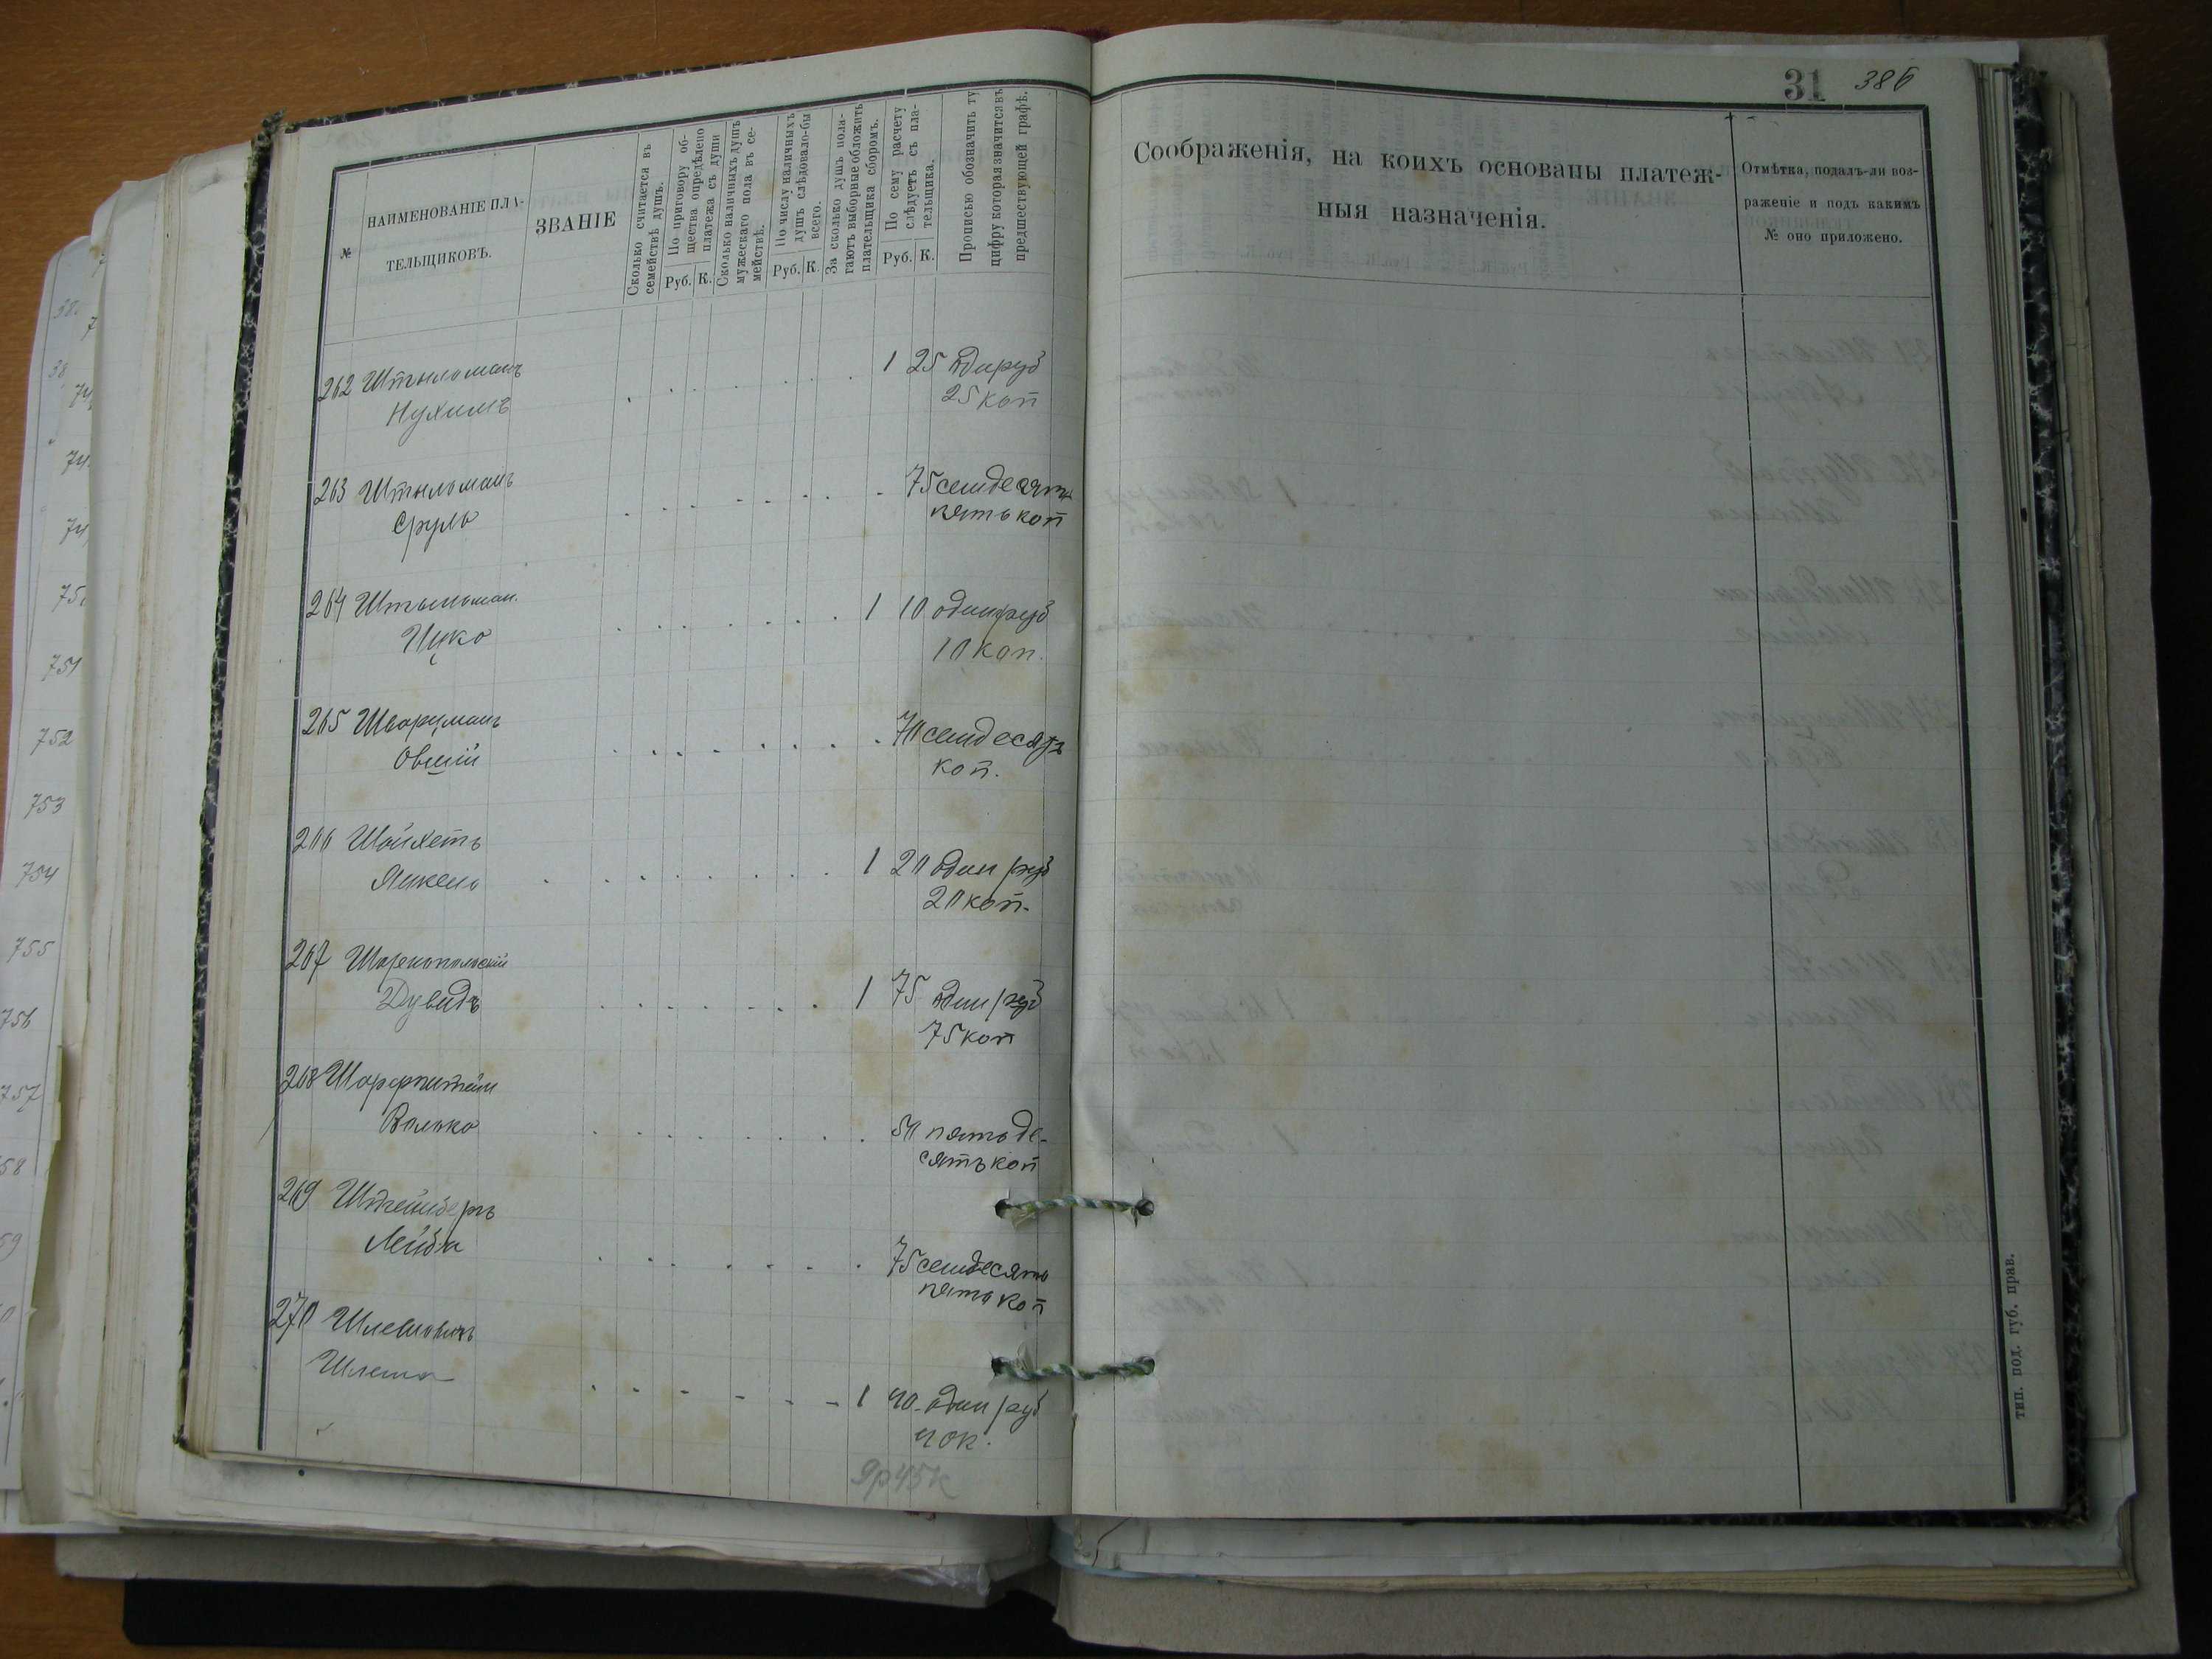 31 386
№
НАИМЕНОВАНІЕ ПЛА-
ТЕЛЬЩИКОВЪ.
ЗВАНІЕ
Сколько считается въ
семействѣ душъ.
По приговору об-
щества опредѣлено
платежа съ души
Руб. К.
Сколько наличныхъ душъ
мужескаго пола въ се-
мействѣ.
По числу наличныхъ
душъ слѣдовало-бы
всего.
Руб. К.
За сколько душъ пола-
гаютъ выборные обложить
плательщика сборомъ.
По сему расчету
слѣдуетъ съ пла-
тельщика.
Руб. К.
Прописью обозначить ту
цифру которая значится въ
предшествующей графѣ.
Соображенія, на коихъ основаны платеж-
ныя назначенія.
Отмѣтка, подалъ-ли воз-
раженіе и подъ какимъ
№ оно приложено.
262 Штыльманъ 1 25 один руб
Нухимъ 25 коп
263 Штыльманъ 75 семдесятъ
Сруль пять коп
264 Штыльман. 1 10 один руб
Ицко 10 коп.
265 Шварцманъ 70 семдесятъ
Овшій коп.
266 Шойхетъ 1 20 один руб
Янкель 20 коп.
267 Шаренопольскій 1 75 один руб
Дувидъ 75 коп
268 Шарфштейн
Волько 50 пятьде-
сять коп
269
Лейба 75 семдесять
пять коп
270 Шлемовичъ
Шлема 1 40 один руб
40 к.
9р45к
тип. под. губ. прав.
752
753
754
755
756
757